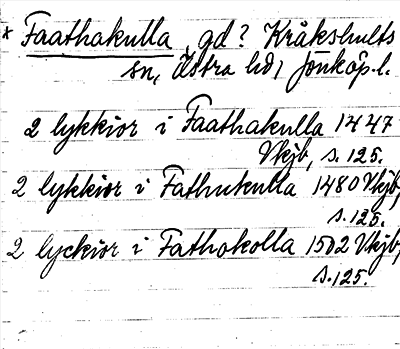 * Faathakulla, gd? Kråkshults
sn, Östra hd, Jönköp. l.
2 lykkior i Faathakulla 1447
Vkjb, s. 125.
2 lykkior i Fathukulla 1480 Vkjb,
s. 125.
2 lyckior i Fathakolla 1502 Vkjb,
s. 125.